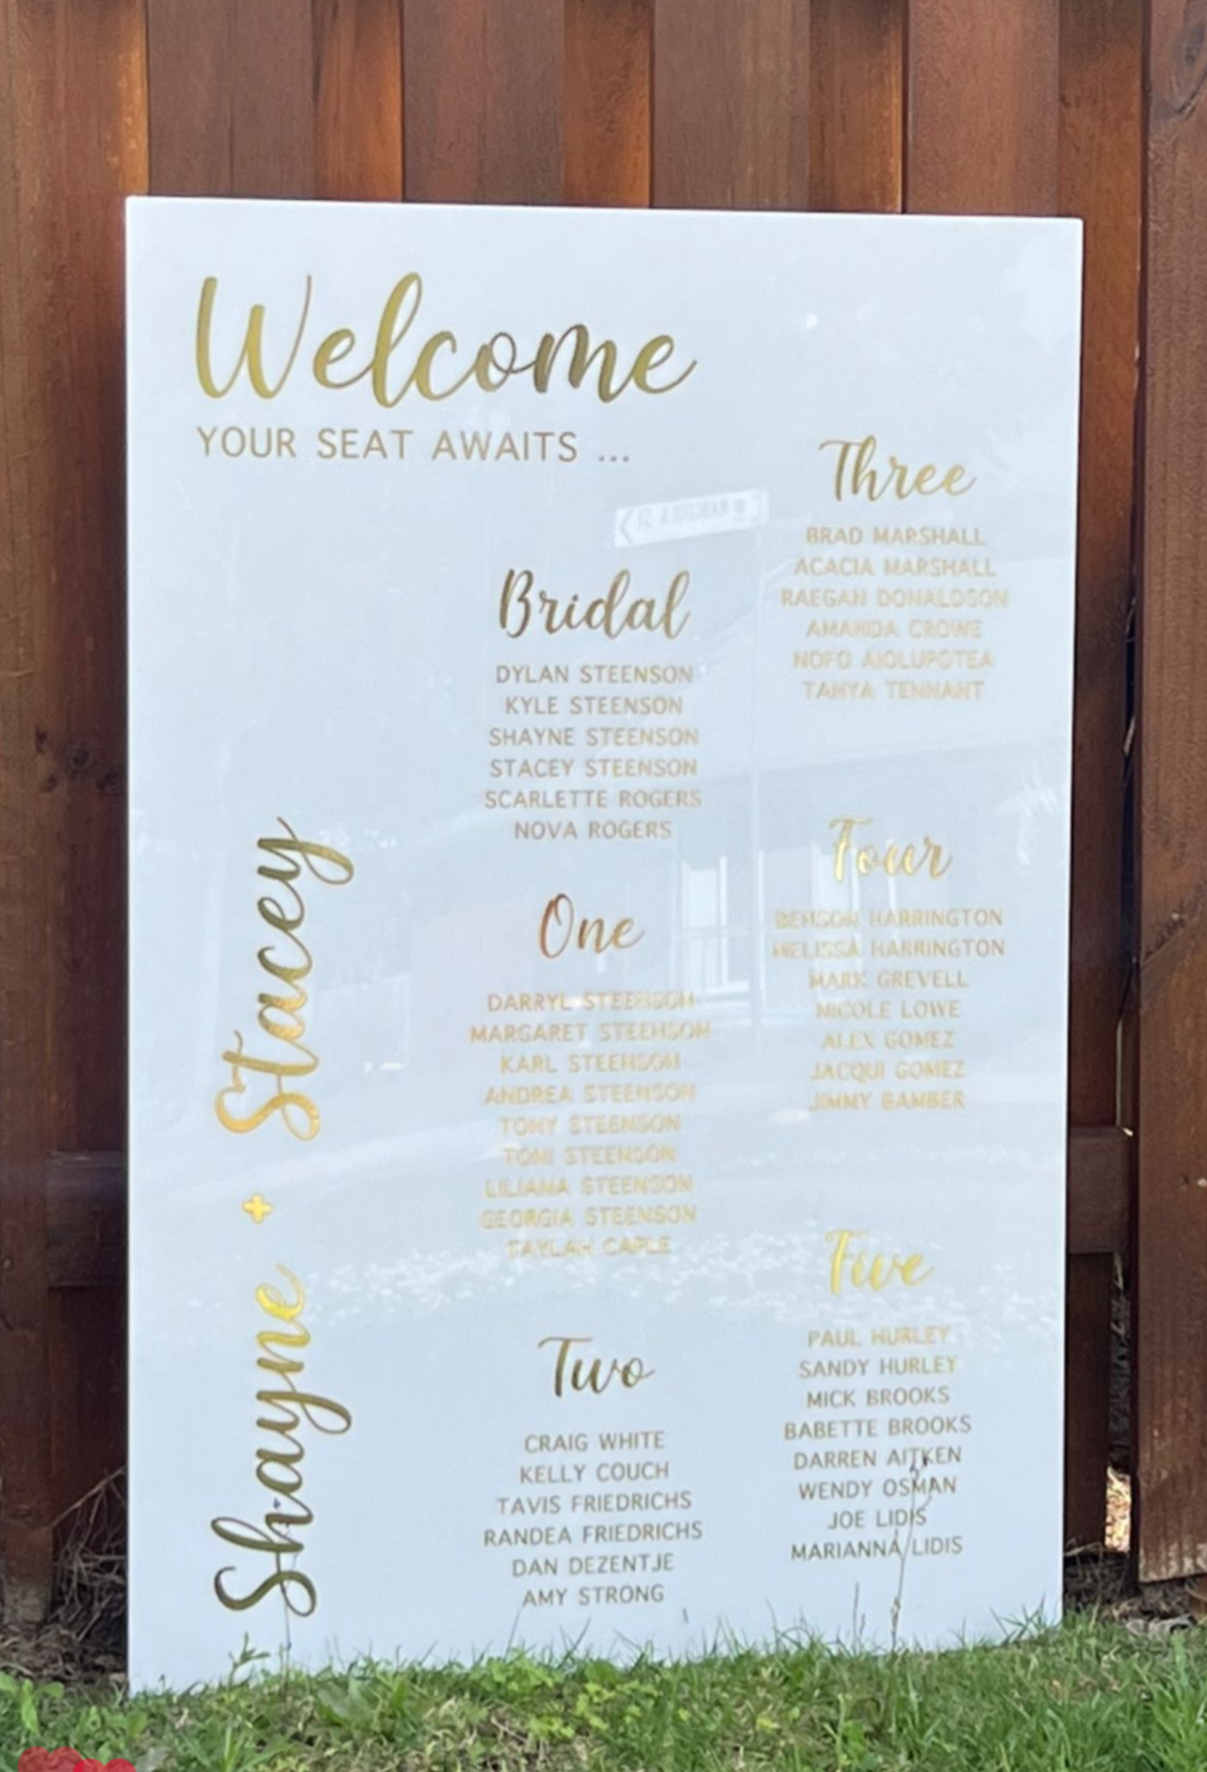 Welcome
YOUR SEAT AWAITS ...
Shayne + Stacey
Bridal
DYLAN STEENSON
KYLE STEENSON
SHAYNE STEENSON
STACEY STEENSON
SCARLETTE ROGERS
NOVA ROGERS
One
DARRYL STEENSON
MARGARET STEENSON
KARL STEENSON
ANDREA STEENSON
TONY STEENSON
TONI STEENSON
LILIANA STEENSON
GEORGIA STEENSON
TAYLAH CAPLE
Two
CRAIG WHITE
KELLY COUCH
TAVIS FRIEDRICHS
RANDEA FRIEDRICHS
DAN DEZENTJE
AMY STRONG
Three
BRAD MARSHALL
ACACIA MARSHALL
RAEGAN DONALDSON
AMANDA CROWE
NOFO AIOLUPOTEA
TANYA TENNANT
Four
BENSON HARRINGTON
MELISSA HARRINGTON
MARK GREVELL
NICOLE LOWE
ALEX GOMEZ
JACQUI GOMEZ
JIMMY BAMBER
Five
PAUL HURLEY
SANDY HURLEY
MICK BROOKS
BABETTE BROOKS
DARREN AITKEN
WENDY OSMAN
JOE LIDIS
MARIANNA LIDIS